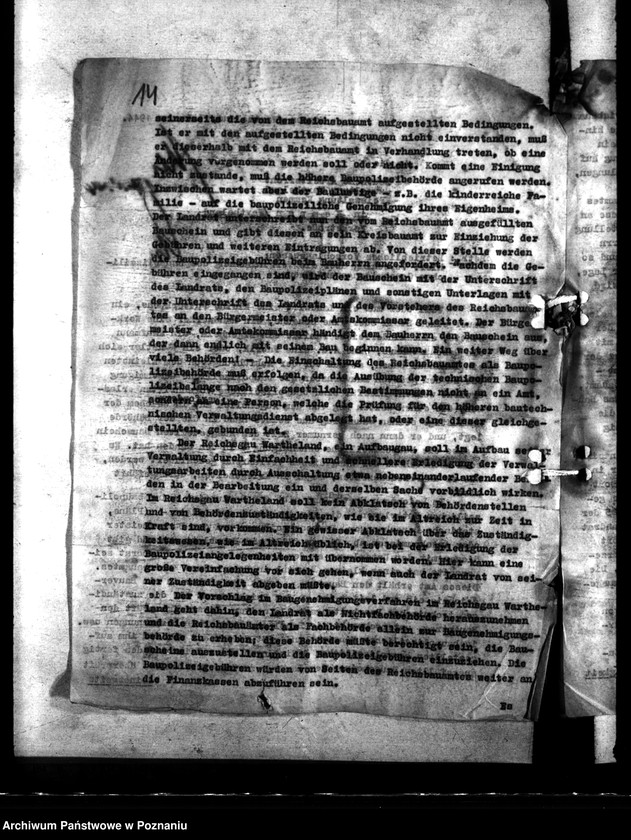 14
seinerseits die von dem Reichsbauamt aufgestellten Bedingungen.
Ist er mit den aufgestellten Bedingungen nicht einverstanden, muß
er dieserhalb mit dem Reichsbauamt in Verhandlung treten, ob eine
Änderung vorgenommen werden soll oder nicht. Kommt eine Einigung
nicht zustande, muß die höhere Baupolizeibehörde angerufen werden.
Inzwischen wartet aber der Baulustige - z.B. die kinderreiche Fa-
milie - auf die baupolizeiliche Genehmigung ihres Eigenheims.
Der Landrat unterschreibt nun den vom Reichsbauamt ausgefüllten
Bauschein und gibt diesen an sein Kreisbauamt zur Einziehung der
Gebühren und weiteren Eintragungen ab. Von dieser Stelle werden
die Baupolizeigebühren beim Bauherrn angefordert. Nachdem die Ge-
bühren eingegangen sind, wird der Bauschein mit der Unterschrift
des Landrats, den Baupolizeiplänen und sonstigen Unterlagen mit
der Unterschrift des Landrats und des Vorstehers des Reichsbauam-
tes an den Bürgermeister oder Amtskommissar geleitet. Der Bürger-
meister oder Amtskommissar händigt dem Bauherrn den Bauschein aus,
der dann endlich mit seinem Bau beginnen kann. Ein weiter Weg über
viele Behörden! - Die Einschaltung des Reichsbauamtes als Baupo-
lizeibehörde muß erfolgen, da die Ausübung der technischen Baupo-
lizeibelange nach den gesetzlichen Bestimmungen nicht an ein Amt,
sondern an eine Person, welche die Prüfung für den höheren bautech-
nischen Verwaltungsdienst abgelegt hat, oder eine dieser gleichge-
stellten, gebunden ist.
Der Reichsgau Wartheland, ein Aufbaugau, soll im Aufbau seiner
Verwaltung durch Einfachheit und schnellere Erledigung der Verwal-
tungsarbeiten durch Ausschaltung etwa nebeneinanderlaufender
den in der Bearbeitung ein und derselben Sache vorbildlich wirken.
Im Reichsgau Wartheland soll kein Abklatsch von Behördenstellen
und von Behördenzuständigkeiten, wie sie im Altreich zur Zeit in
Kraft sind, vorkommen. Ein gewisser Abklatsch über das Zuständig-
keitswesen, wie im Altreich üblich, ist bei der Erledigung der
Baupolizeiangelegenheiten mit übernommen worden. Hier kann eine
große Vereinfachung vor sich gehen, wenn auch der Landrat von sei-
ner Zuständigkeit abgeben müßte.
Der Vorschlag im Baugenehmigungsverfahren im Reichsgau Warthe-
land geht dahin, den Landrat als Nichtfachbehörde herauszunehmen
und die Reichsbauämter als Fachbehörde allein zur Baugenehmigungs-
behörde zu erheben; diese Behörde müßte berechtigt sein, die Bau-
scheine auszustellen und die Baupolizeigebühren einzuziehen. Die
Baupolizeigebühren würden von Seiten des Reichsbauamtes weiter an
die Finanzkassen abzuführen sein.
Es
Archiwum Państwowe w Poznaniu